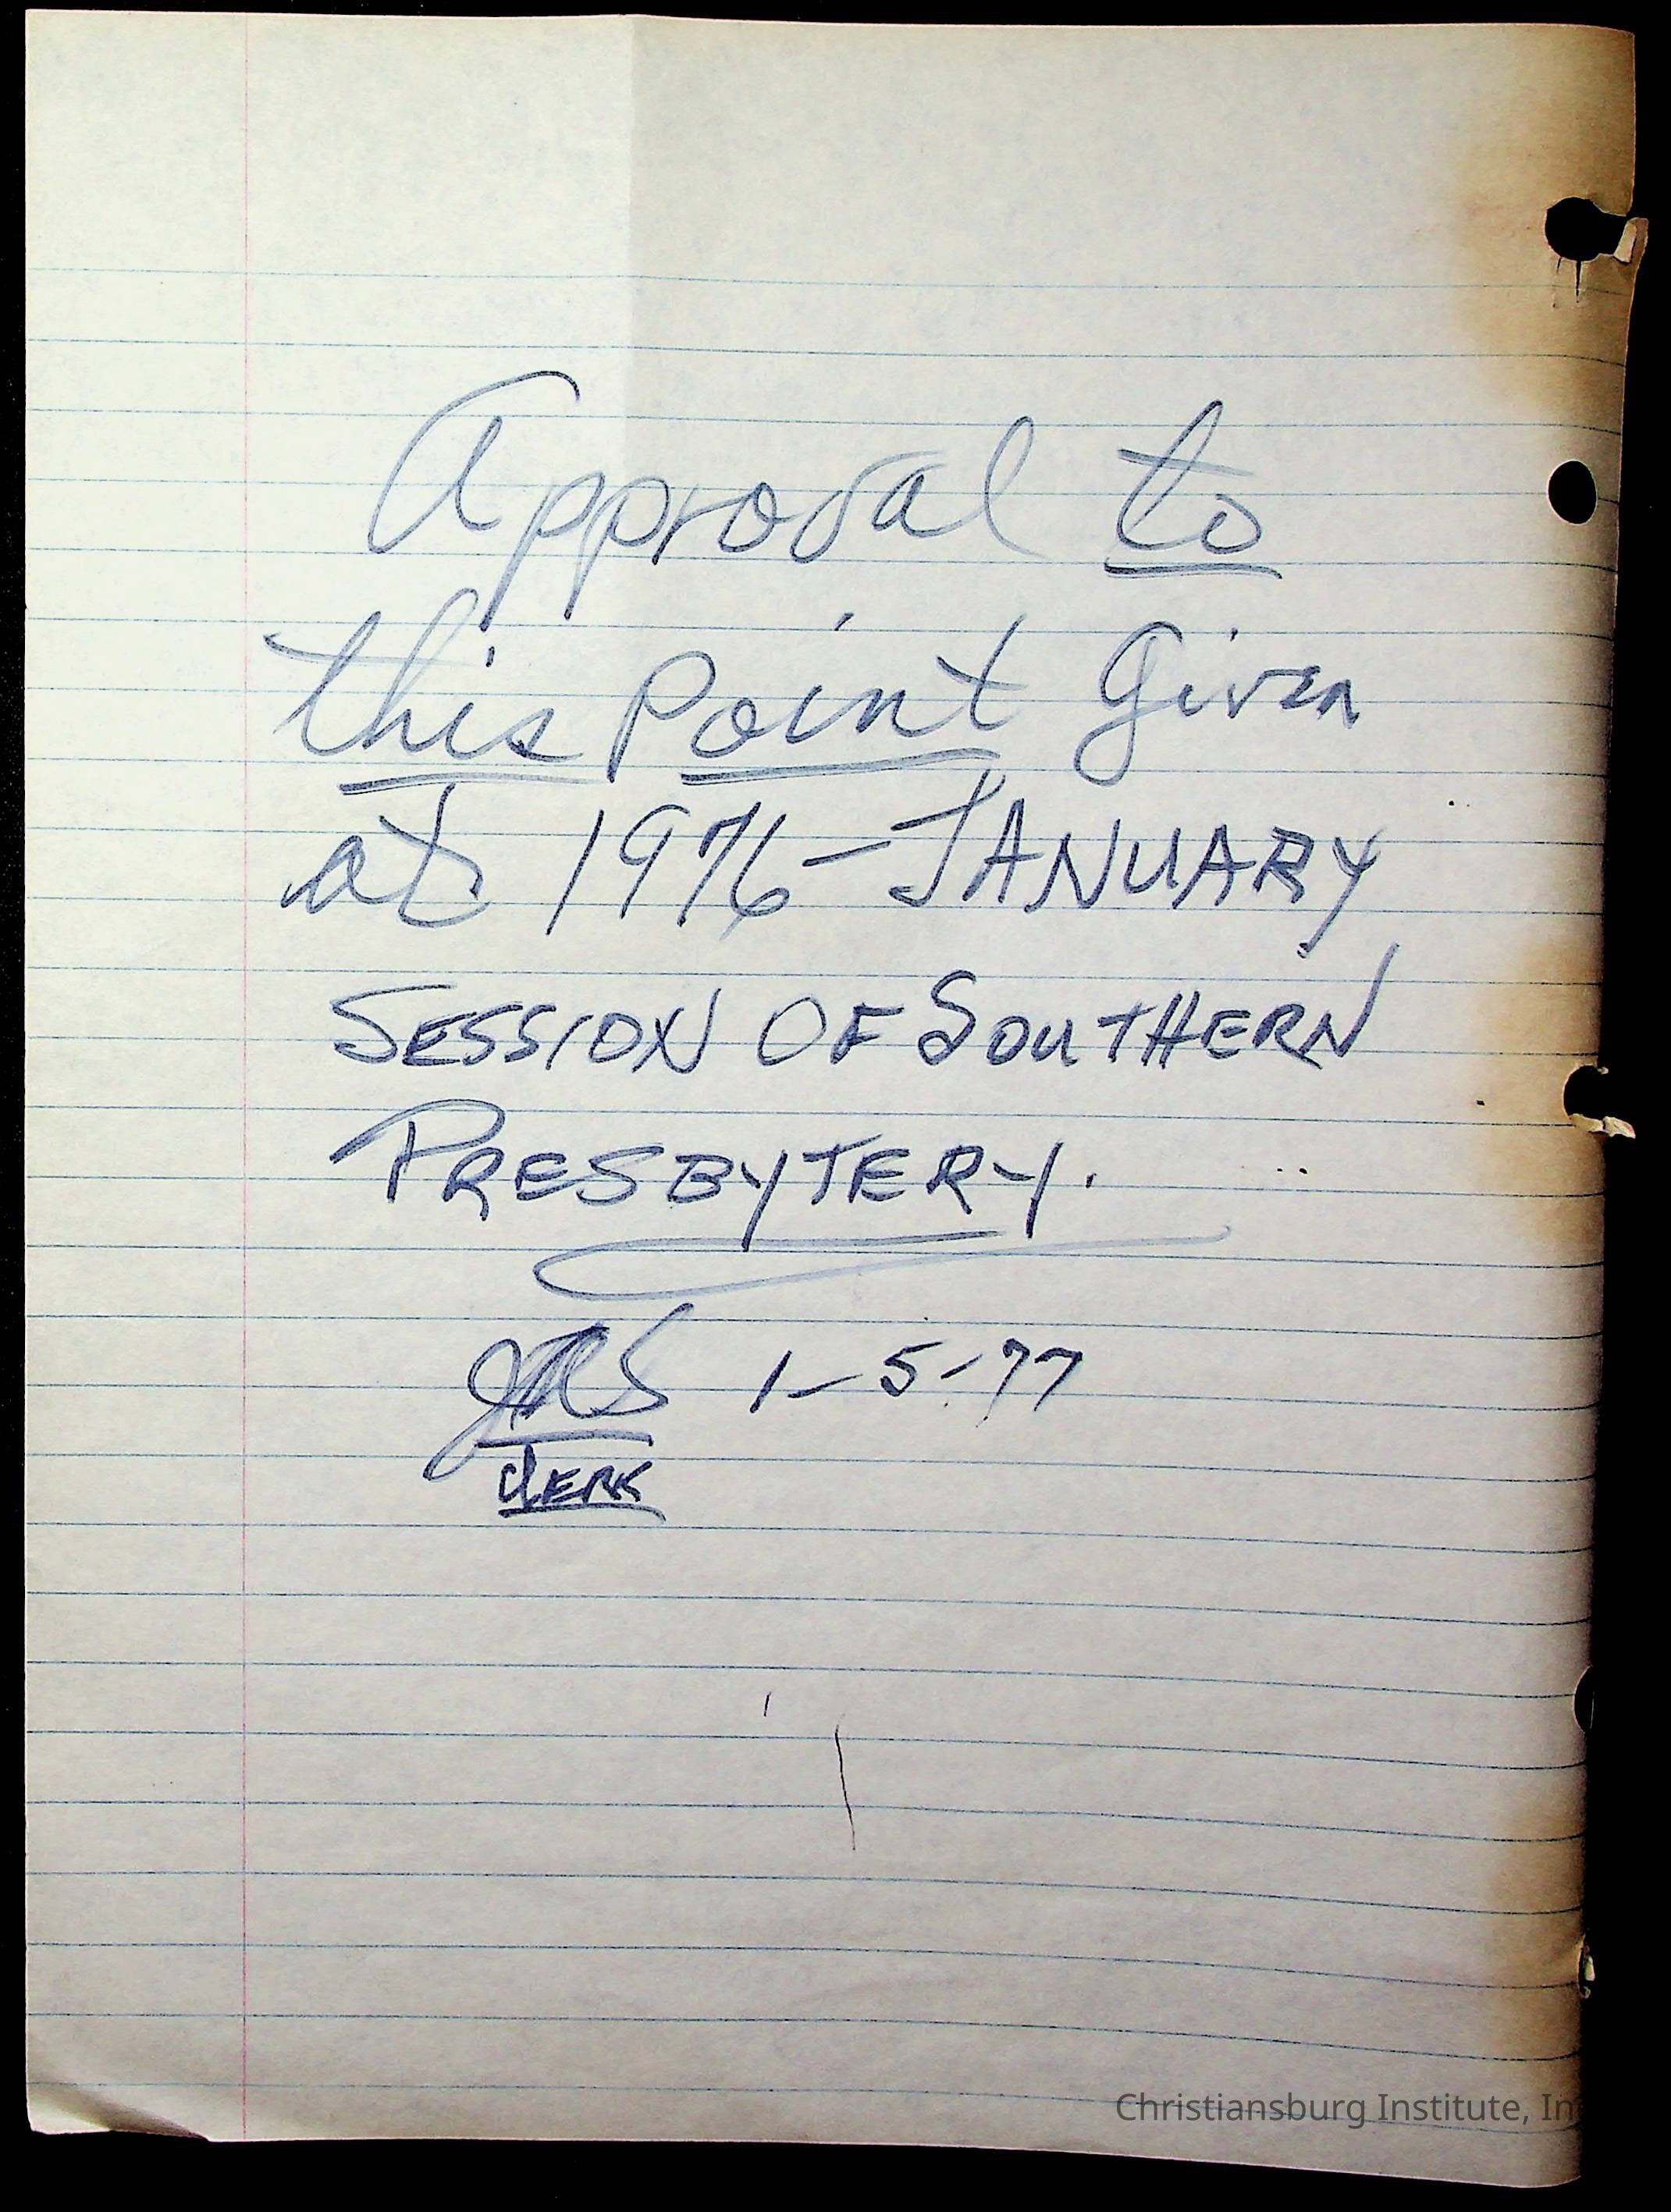 Approval to
this Point Given
at 1976 - JANUARY
SESSION OF SOUTHERN
PRESBYTERY.
1-5-77
CLERK
Christiansburg Institute, In